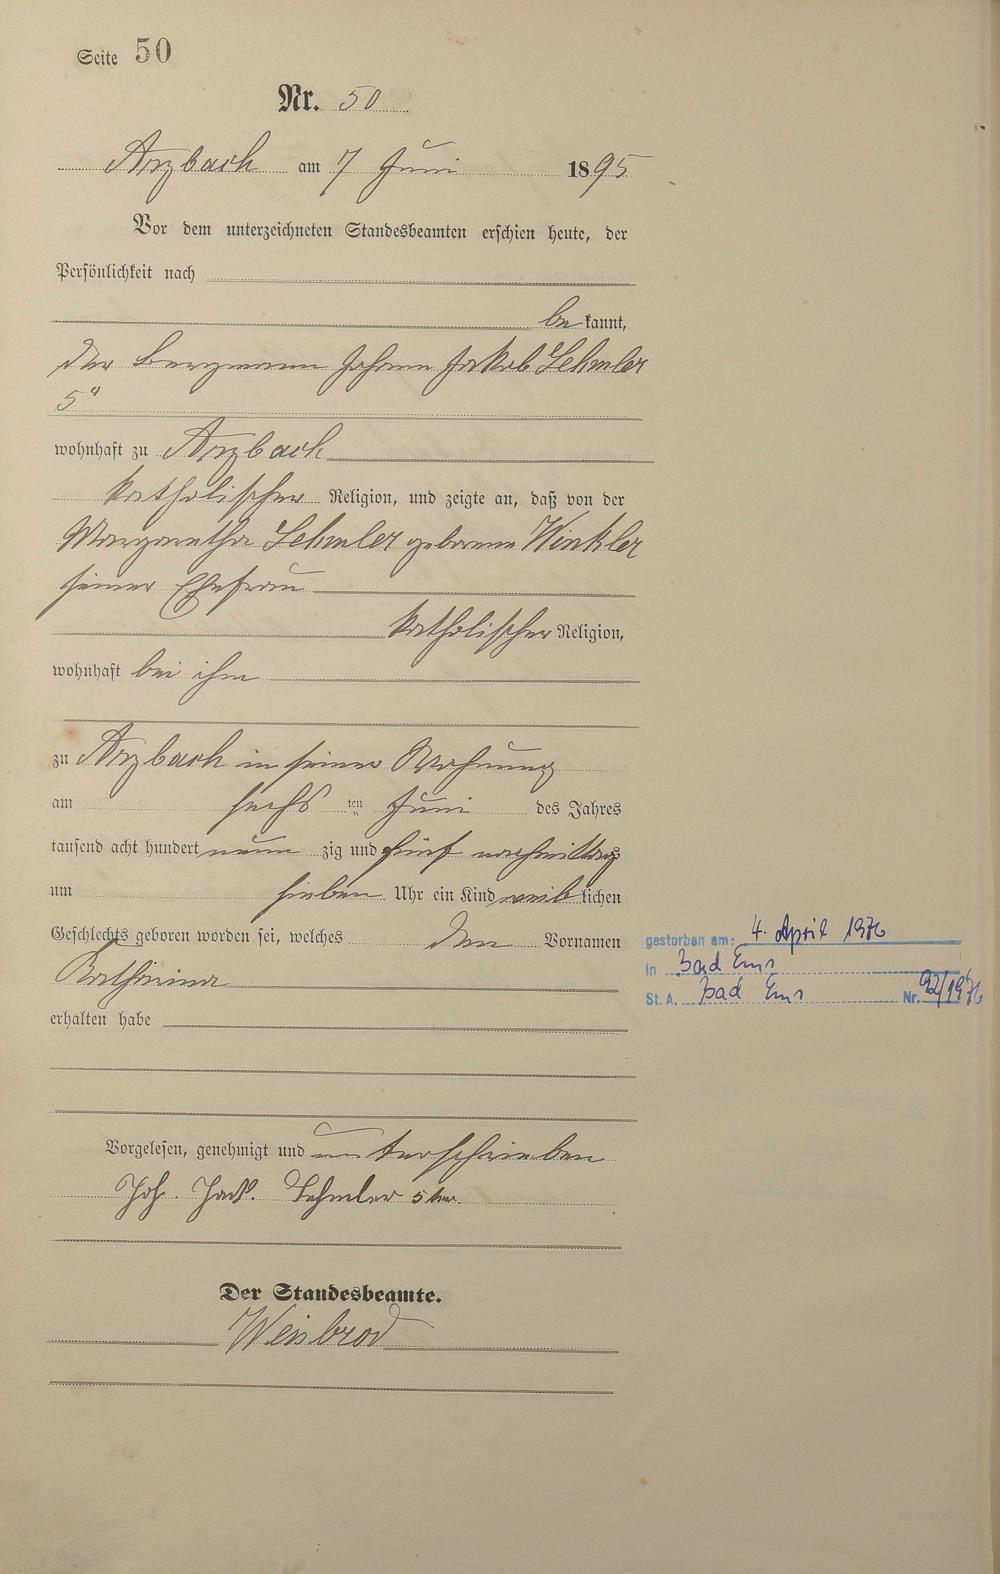 Seite 50
Nr. 50
Arzbach am 7 Juni 1895
Vor dem unterzeichneten Standesbeamten erschien heute, der
Persönlichkeit nach
bekannt,
der Bergmann Johann Jakob Lehmler
5"
wohnhaft zu Arzbach
katholischer Religion, und zeigte an, daß von der
Margaretha Lehmler geborenen Winkler
seiner Ehefrau
katholischer Religion,
wohnhaft bei ihm
zu Arzbach in seiner Wohnung
am sechs ten Juni des Jahres
tausend acht hundert neun zig und fünf nachmittags
um sieben Uhr ein Kind weiblichen
Geschlechts geboren worden sei, welches den Vornamen
gestorben am: 4. April 1976
Katharina
in Bad Ems
St. A. Bad Ems Nr. 92/1976
erhalten habe
Vorgelesen, genehmigt und unterschrieben
Joh. Jak. Lehmler 5ter.
Der Standesbeamte.
Weisbrod